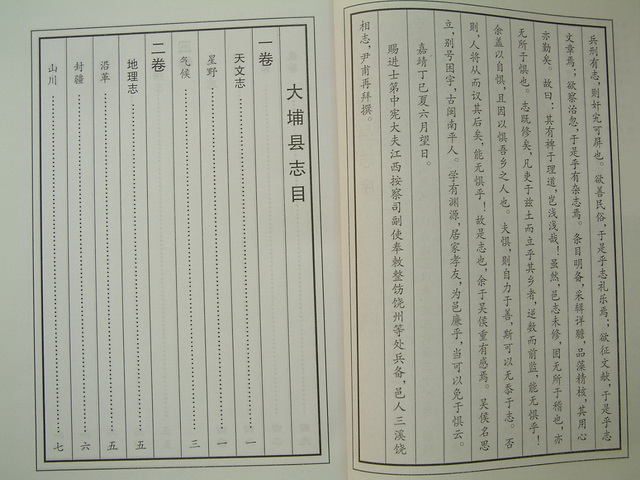 兵刑有志，则奸宄可屏也。欲善民俗，于是乎志礼乐焉；欲征文献，于是乎志
文章焉；欲察治忽，于是乎有杂志焉。条目明备，采辑详赡，品藻精核，其用心
亦勤矣。故曰：其有裨于理道，岂浅浅哉！虽然，邑志未修，因无所于稽也，亦
无所于惧也。志既修矣，凡吏于兹土而立乎其乡者，逆数而前监，能无惧乎！
余盖以自惧，且因以惧吾乡之人也。夫惧，则自力于善，斯可以无忝于志。否
则，人将从而议其后矣，能无惧乎！故是志也，余于吴侯重有感焉。吴侯名思
立，别号国字，古闽南平人。学有渊源，居家孝友，为邑廉平，当可以免于惧云。
嘉靖丁巳夏六月望日。
赐进士第中宪大夫江西按察司副使奉敕整饬饶州等处兵备，邑人三溪饶
相志，尹甫再拜撰。
大埔县志目
一卷
天文志……………………一
星野……………………一
气候……………………三
二卷
地理志……………………五
沿革……………………五
封疆……………………六
山川……………………七